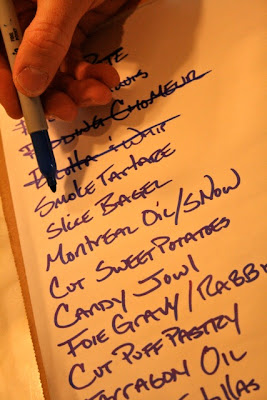 PUDDING CHOMEUR
RICOTTA & WHIT
SMOKE TARTARE
SLICE BAGEL
MONTREAL OIL/SNOW
CUT SWEET POTATOES
CANDY JOWL
FOIE GRAVY/RABB
CUT PUFF PASTRY
TARRAGON OIL